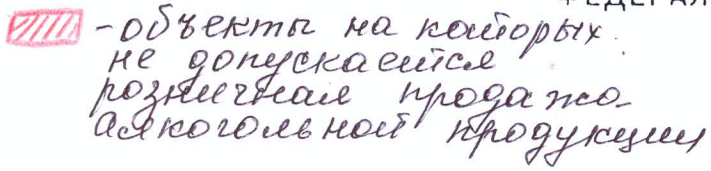 ФЕДЕРАЛ
-объекты на которых
не допускается
розничная продажа
алкогольной продукции